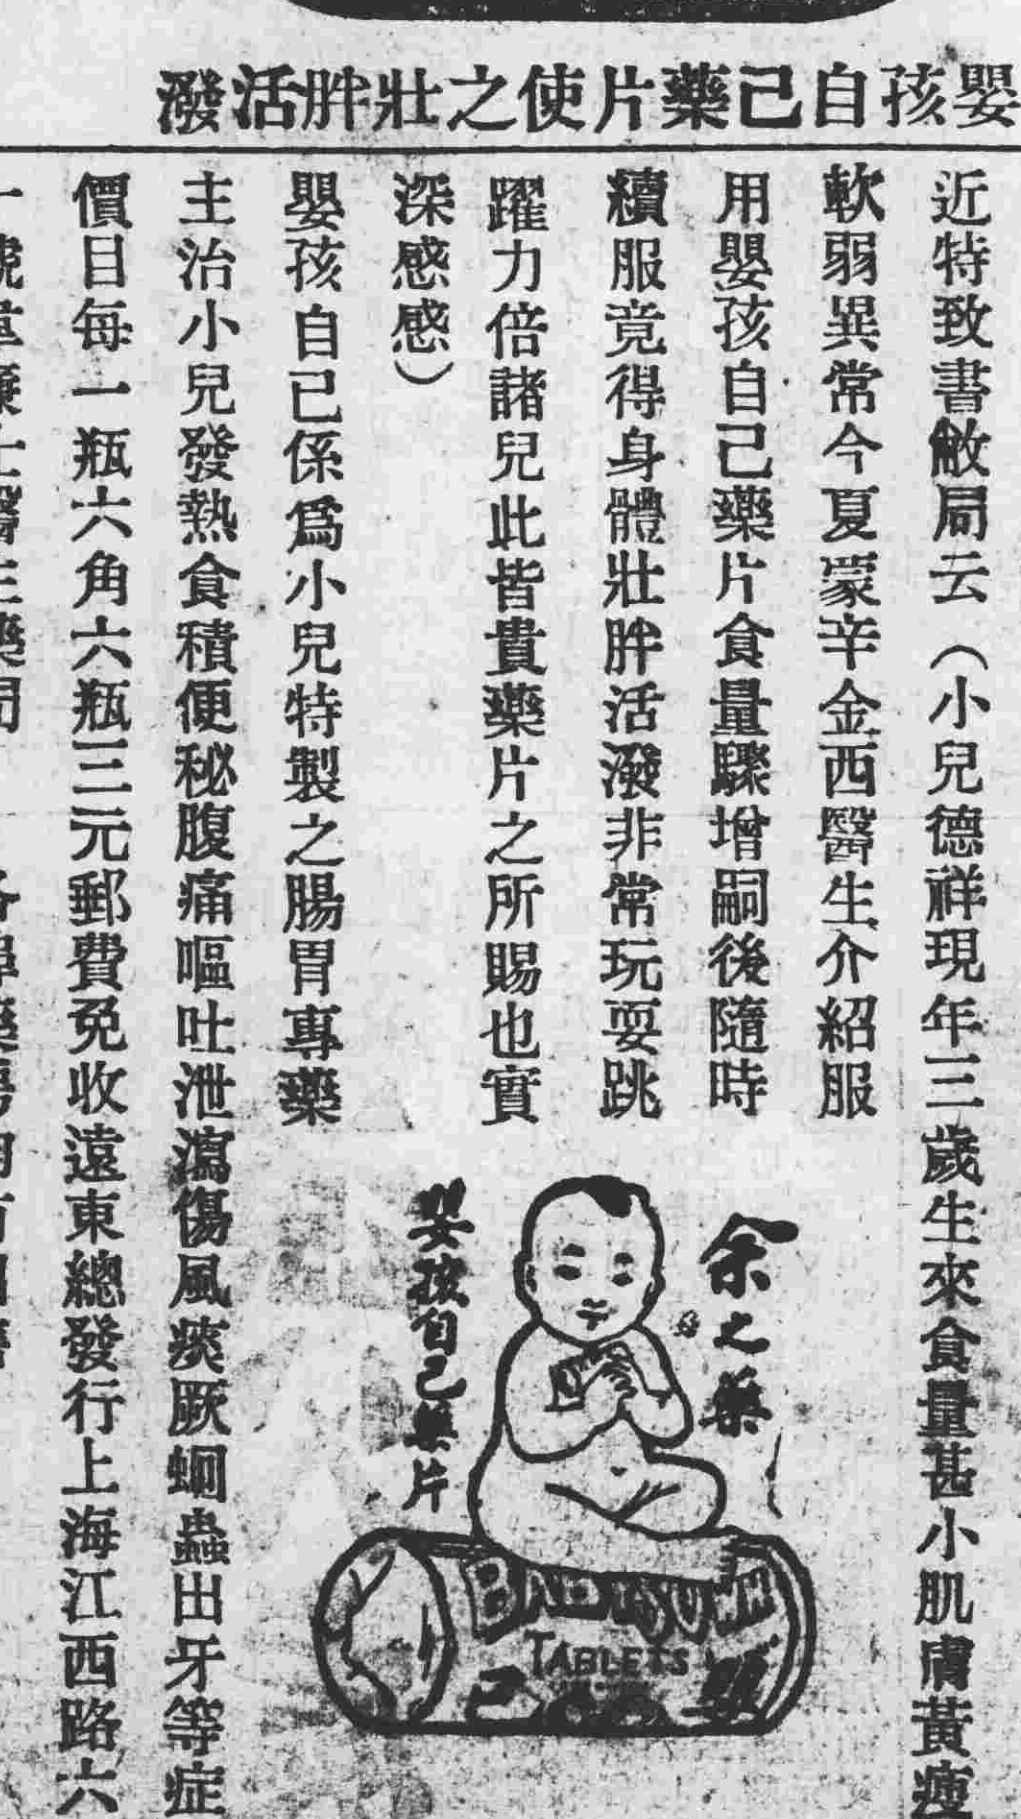 嬰孩自己藥片使之壯胖活潑
近特致書敝局云（小兒德祥現年三歲生來食量甚小肌膚黃瘦
軟弱異常今夏蒙辛金西醫生介紹服
用嬰孩自己藥片食量驟增嗣後隨時
續服竟得身體壯胖活潑非常玩耍跳
躍力倍諸兒此皆貴藥片之所賜也實
深感感）
余之藥
嬰孩自己藥片
TABLETS
嬰孩自己係為小兒特製之腸胃專藥
主治小兒發熱食積便秘腹痛嘔吐泄瀉傷風痰厥蛔蟲出牙等症
價目每一瓶六角六瓶三元郵費免收遠東總發行上海江西路六